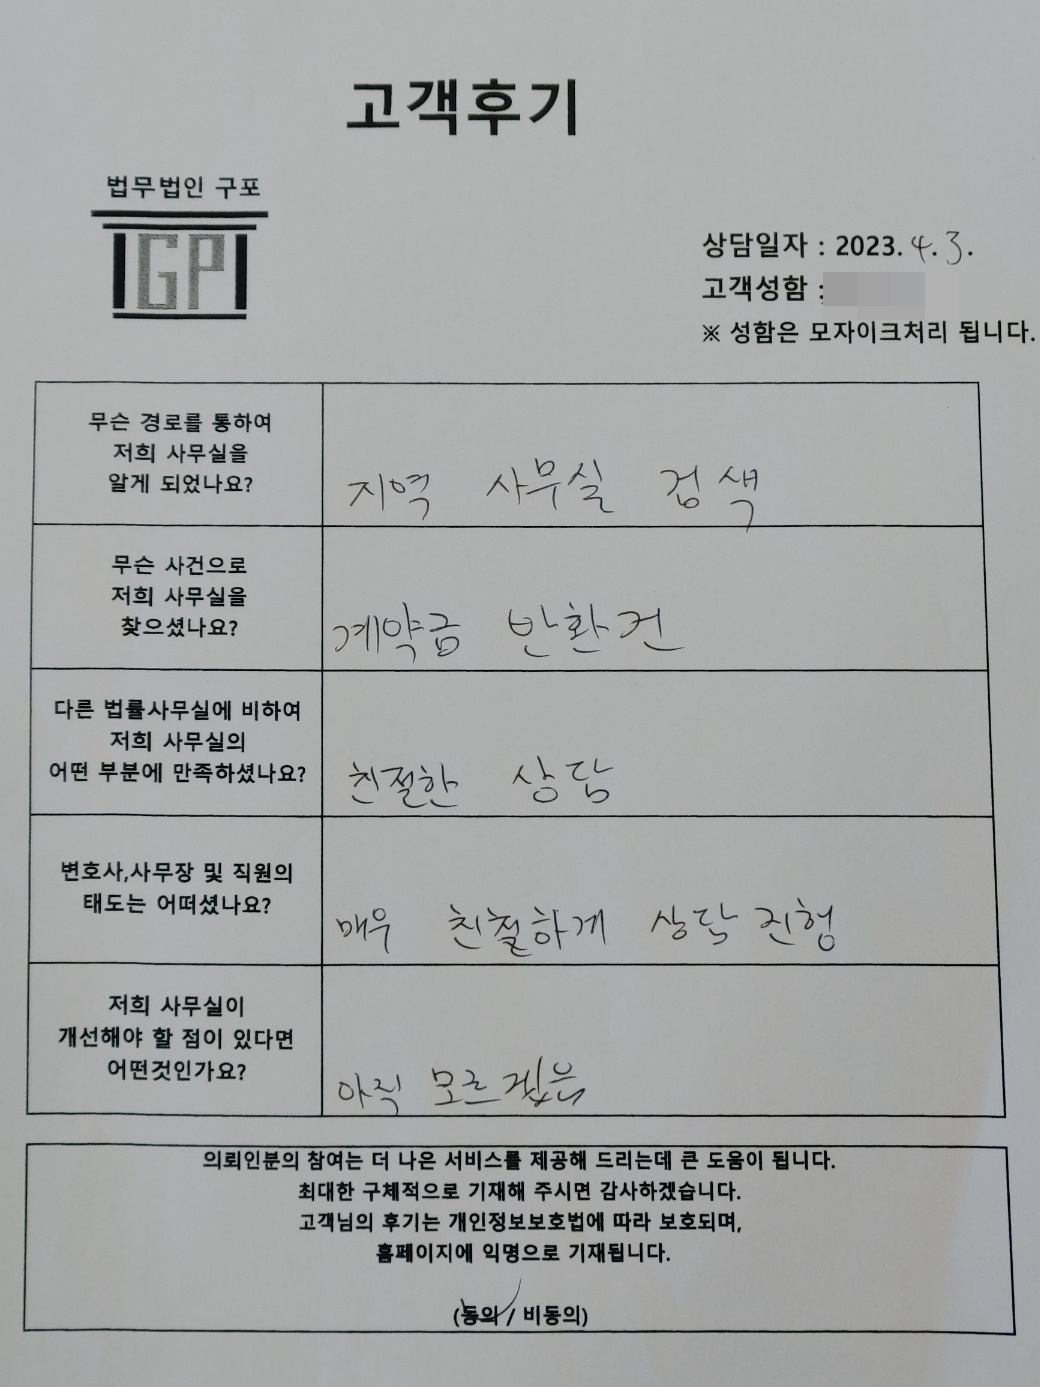 고객후기
법무법인 구포
GP
상담일자 : 2023. 4. 3.
고객성함 :
※ 성함은 모자이크처리 됩니다.
무슨 경로를 통하여
저희 사무실을
알게 되었나요?
지역 사무실 검색
무슨 사건으로
저희 사무실을
찾으셨나요?
계약금 반환건
다른 법률사무실에 비하여
저희 사무실의
어떤 부분에 만족하셨나요?
친절한 상담
변호사,사무장 및 직원의
태도는 어떠셨나요?
매우 친절하게 상담 진행
저희 사무실이
개선해야 할 점이 있다면
어떤것인가요?
아직 모르겠음
의뢰인분의 참여는 더 나은 서비스를 제공해 드리는데 큰 도움이 됩니다.
최대한 구체적으로 기재해 주시면 감사하겠습니다.
고객님의 후기는 개인정보보호법에 따라 보호되며,
홈페이지에 익명으로 기재됩니다.
(동의 / 비동의)